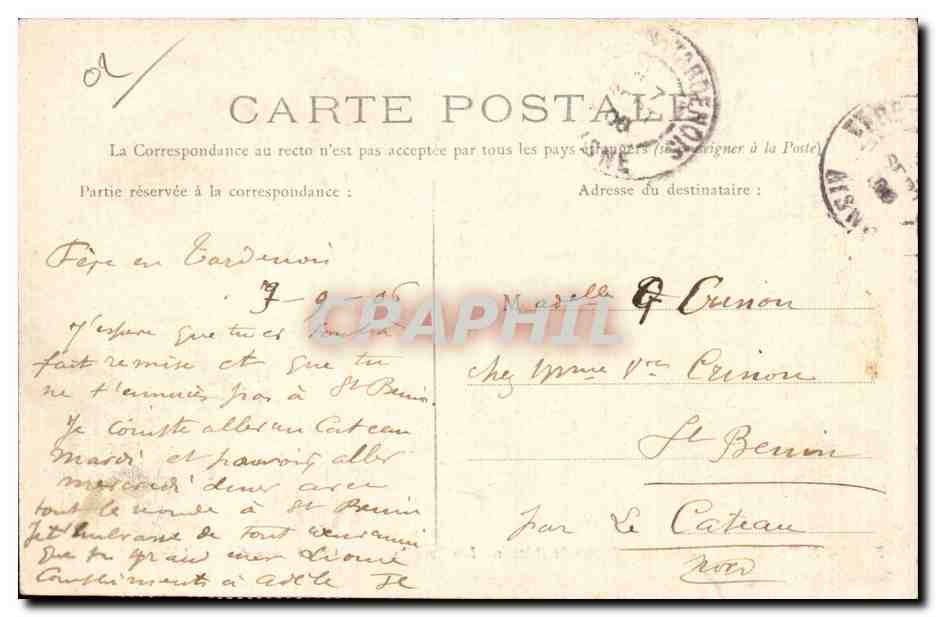 CARTE POSTALE
La Correspondance au recto n'est pas acceptée par tous les pays étrangers (se renseigner à la Poste)
Partie réservée à la correspondance :
Adresse du destinataire :
Fère en Tardenois
J'espère que tu es
fait remise et que tu
ne t'ennuies pas à St Benin.
Je compte aller au Cateau
mardi et pouvoir aller
mercredi diner avec
tout le monde à St Benin
Je t'embrasse de tout
que
compliments à Adèle
Madelle G Crinon
chez Mme Vve Crinon
St Benin
par Le Cateau
Nord
TARDENOIS
AISNE
CPAPHIL